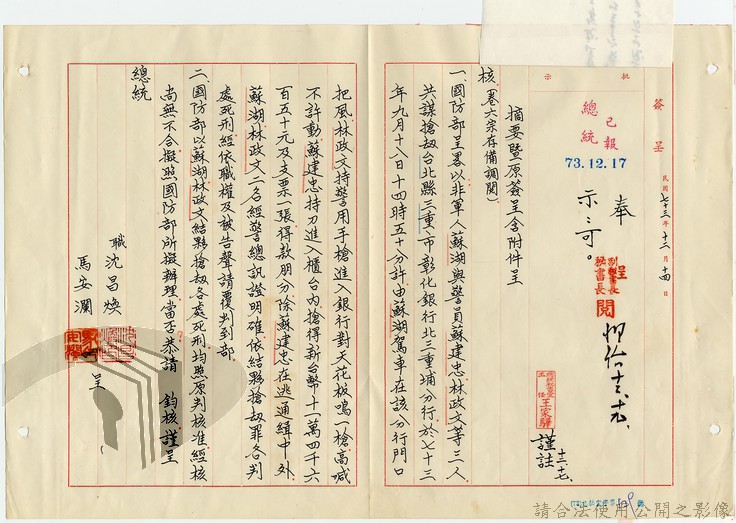 批示
簽呈
民國七十三年十二月十四日
已報
總統
73.12.17
奉
示：可。
副秘書長
秘書長
呈
閱
王家驊
謹註
十二、十七
摘要暨原簽呈含附件呈
核(卷六宗存備調閱)
一、國防部呈畧以非軍人蘇湖與警員蘇建忠、林政文等三人
共謀搶劫台北縣三重市彰化銀行北三重埔分行於七十三
年九月十八日十四時五十分許由蘇湖駕車在該分行門口
把風林政文持警用手槍進入銀行對天花板鳴一槍高喊
不許動蘇建忠持刀進入櫃台內搶得新台幣十一萬四千六
百五十元及支票一張得款朋分除蘇建忠在逃通緝中外
蘇湖、林政文二名經警總訊證明確依結夥搶劫罪各判
處死刑經依職權及被告聲請覆判到部。
二、國防部以蘇湖林政文結夥搶劫各處死刑均照原判核准經核
尚無不合擬照國防部所擬辦理當否恭請 鈞核謹呈
總統
職 沈昌煥
馬安瀾
呈
請合法使用公開之影像